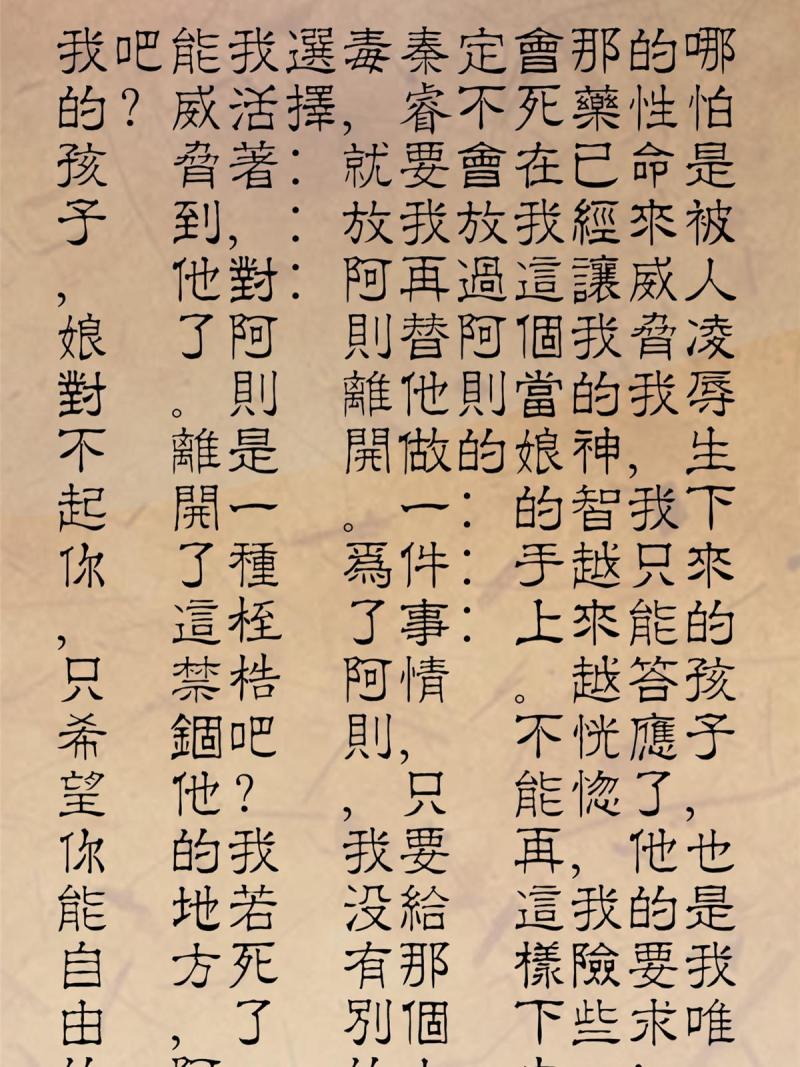 哪怕是被人凌辱生下來的孩子,也是我唯
的性命來威脅我,我只能答應了他的要求
那藥已經讓我的神智越來越恍惚,我險些
會死在我這個當娘的手上。不能再這樣下
定不會放過阿則的：：：
秦睿要我再替他做一件事情,只要給那個
毒,就放阿則離開。爲了阿則,我没有別
選擇：：：
我活著,對阿則是一種桎梏吧?我若死了
能威脅到他了。離開了這禁錮他的地方,
吧?
我的孩子,娘對不起你,只希望你能自由